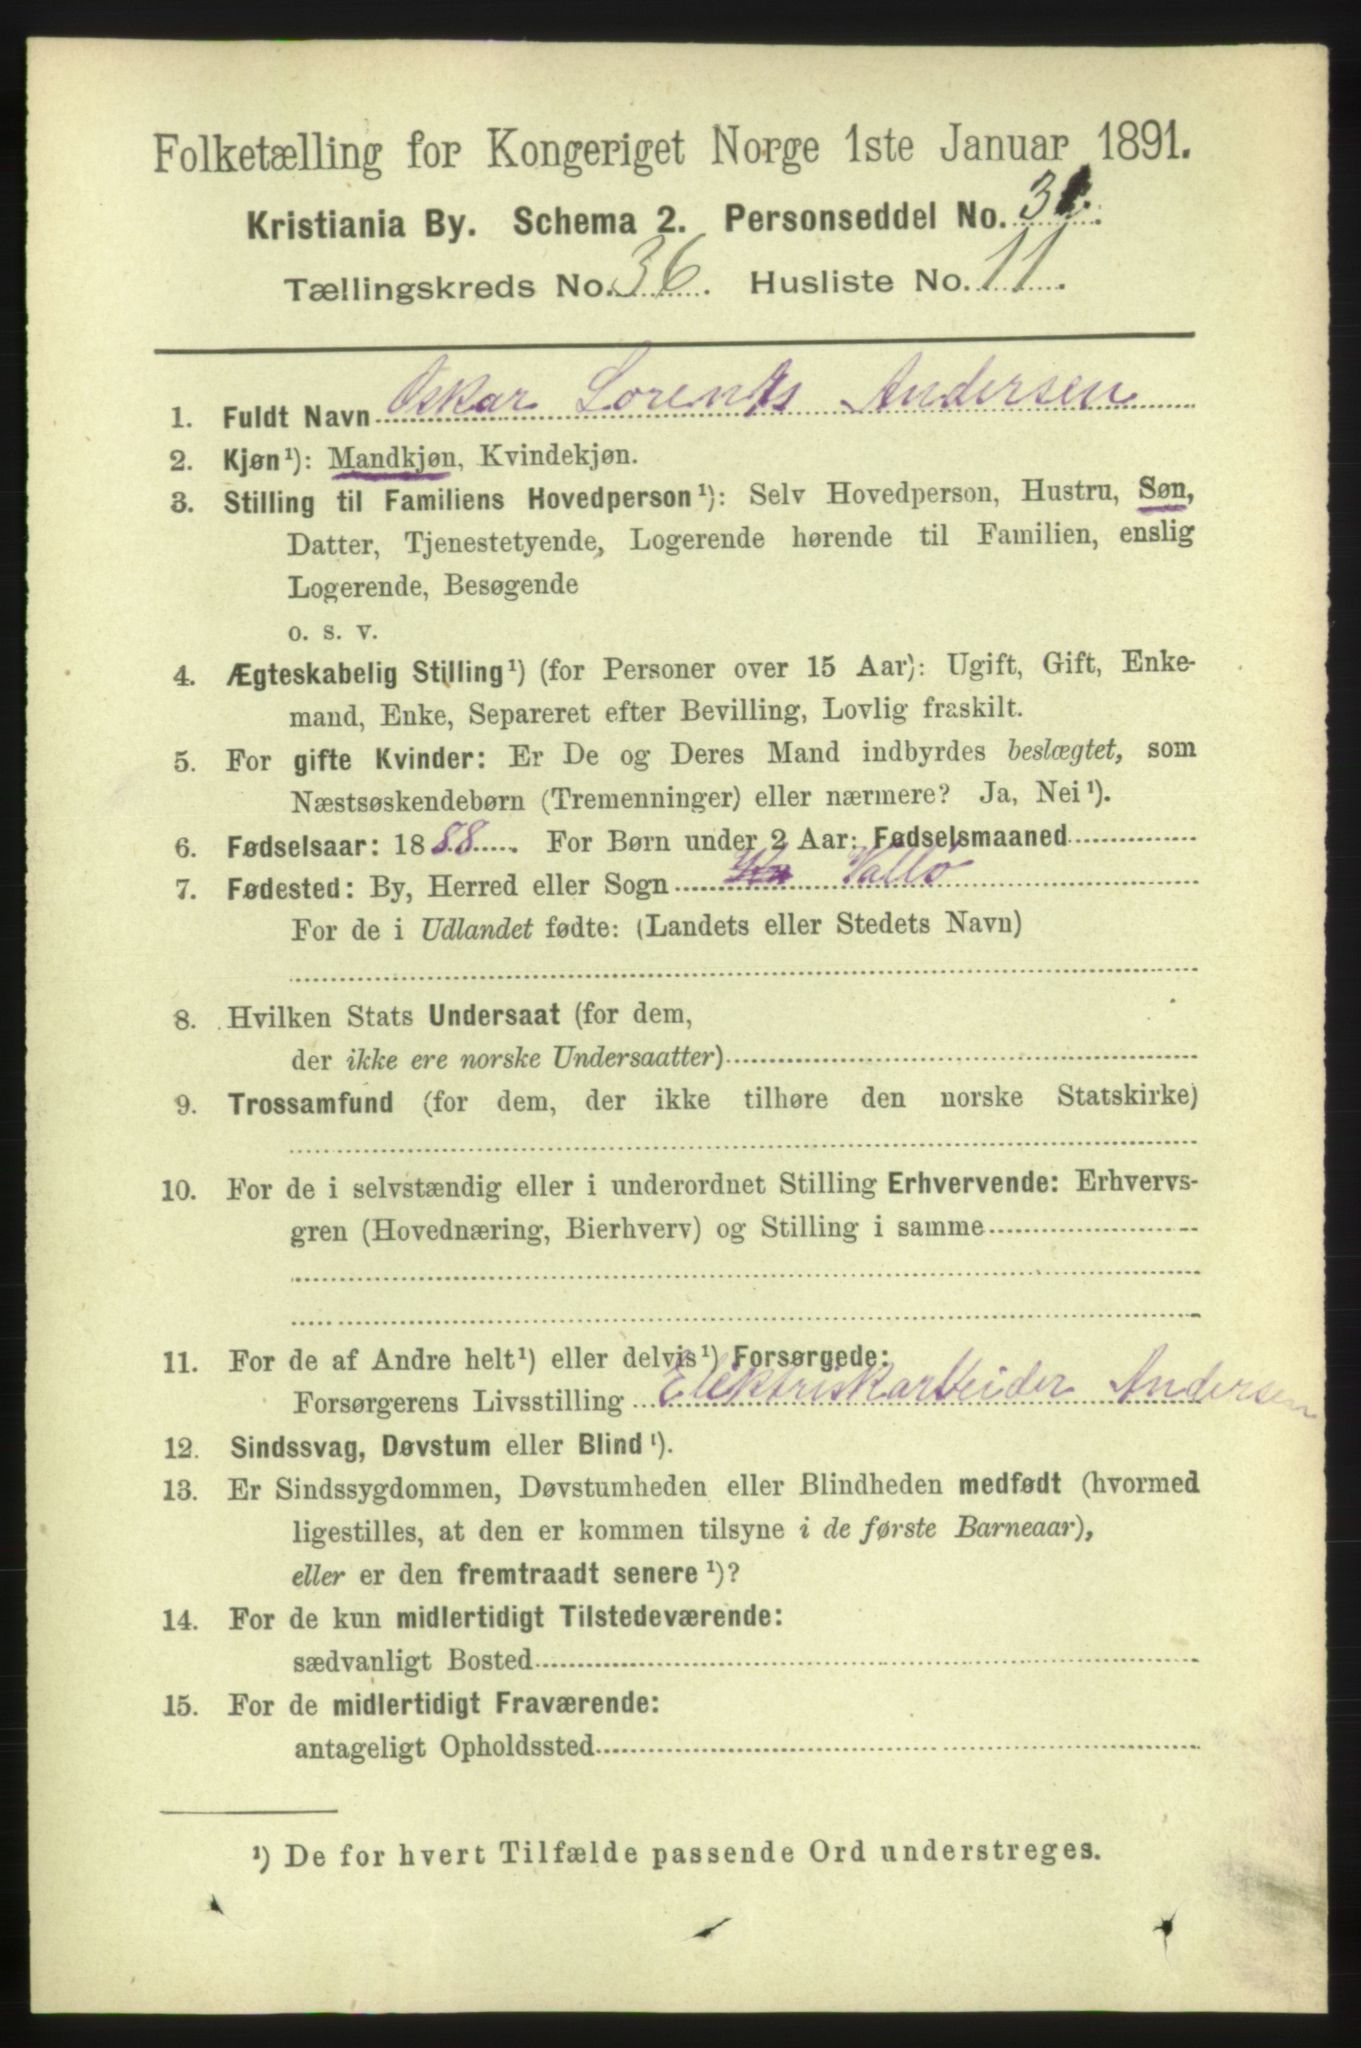 Folketælling for Kongeriget Norge 1ste Januar 1891.
Kristiania By. Schema 2. Personseddel No.
Tællingskreds No. 36. Husliste No. 11.
1. Fuldt Navn Oskar Lorents Andersen
2. Kjøn¹): Mandkjøn, Kvindekjøn.
3. Stilling til Familiens Hovedperson¹): Selv Hovedperson, Hustru, Søn,
Datter, Tjenestetyende, Logerende hørende til Familien, enslig
Logerende, Besøgende
o. s. v.
4. Ægteskabelig Stilling¹) (for Personer over 15 Aar): Ugift, Gift, Enke-
mand, Enke, Separeret efter Bevilling, Lovlig fraskilt.
5. For gifte Kvinder: Er De og Deres Mand indbyrdes beslægtet, som
Næstsøskendebørn (Tremenninger) eller nærmere? Ja, Nei¹).
6. Fødselsaar: 1888. For Børn under 2 Aar: Fødselsmaaned
7. Fødested: By, Herred eller Sogn Vallö
For de i Udlandet fødte: (Landets eller Stedets Navn)
8. Hvilken Stats Undersaat (for dem,
der ikke ere norske Undersaatter)
9. Trossamfund (for dem, der ikke tilhøre den norske Statskirke)
10. For de i selvstændig eller i underordnet Stilling Erhvervende: Erhvervs-
gren (Hovednæring, Bierhverv) og Stilling i samme
11. For de af Andre helt¹) eller delvis¹) Forsørgede:
Forsørgerens Livsstilling Elektriskarbeider Andersen
12. Sindssvag, Døvstum eller Blind¹).
13. Er Sindssygdommen, Døvstumheden eller Blindheden medfødt (hvormed
ligestilles, at den er kommen tilsyne i de første Barneaar),
eller er den fremtraadt senere¹)?
14. For de kun midlertidigt Tilstedeværende:
sædvanligt Bosted
15. For de midlertidigt Fraværende:
antageligt Opholdssted
¹) De for hvert Tilfælde passende Ord understreges.